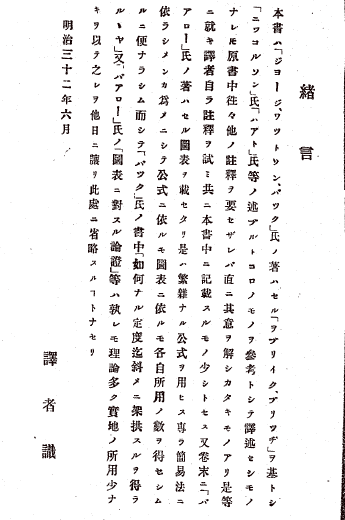 緒言
本書ハ「ジヨージ、ワツトソン、バツク」氏ノ著ハセル「ヲブリイク、ブリツヂ」ヲ基トシ
「ニコルソン」氏「ハアト」氏等ノ述ブルトコロノモノヲ參考トシテ譯述セシモノ
ナレモ原書中往々他ノ註釋ヲ要セザレバ直ニ其意ヲ解シカタキモノアリ是等
ニ就キ譯者自ラ註釋ヲ試ミ共ニ本書中ニ記載スルモノ少シトセス又卷末ニ「バ
アロー」氏ノ著ハセル圖表ヲ載セタリ是ハ繁雜ナル公式ヲ用ヒス專ラ簡易法ニ
依ラシメンカ爲メニシテ公式ニ依ルモ圖表ニ依ルモ各自所用ノ數ヲ得セシム
ルニ便ナラシム而シテ「バツク」氏ノ書中「如何ナル定度迄斜メニ架拱スルヲ得ラ
ルヽヤ」又「バアロー」氏ノ「圖表ニ對スル論證」等ハ孰レモ理論多ク實地ノ所用少ナ
キヲ以テ之レヲ他日ニ讓リ此處ニ省略スルヿトナセリ
明治三十二年六月
譯者識